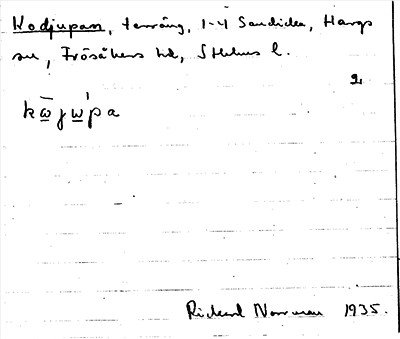 Kodjupan, terräng, 1-4 Sandika, Hargs
sn, Frösåkers hd, Sthlms l.
2
kω̲̄jω̲'pa
Rickard Norrman 1935.